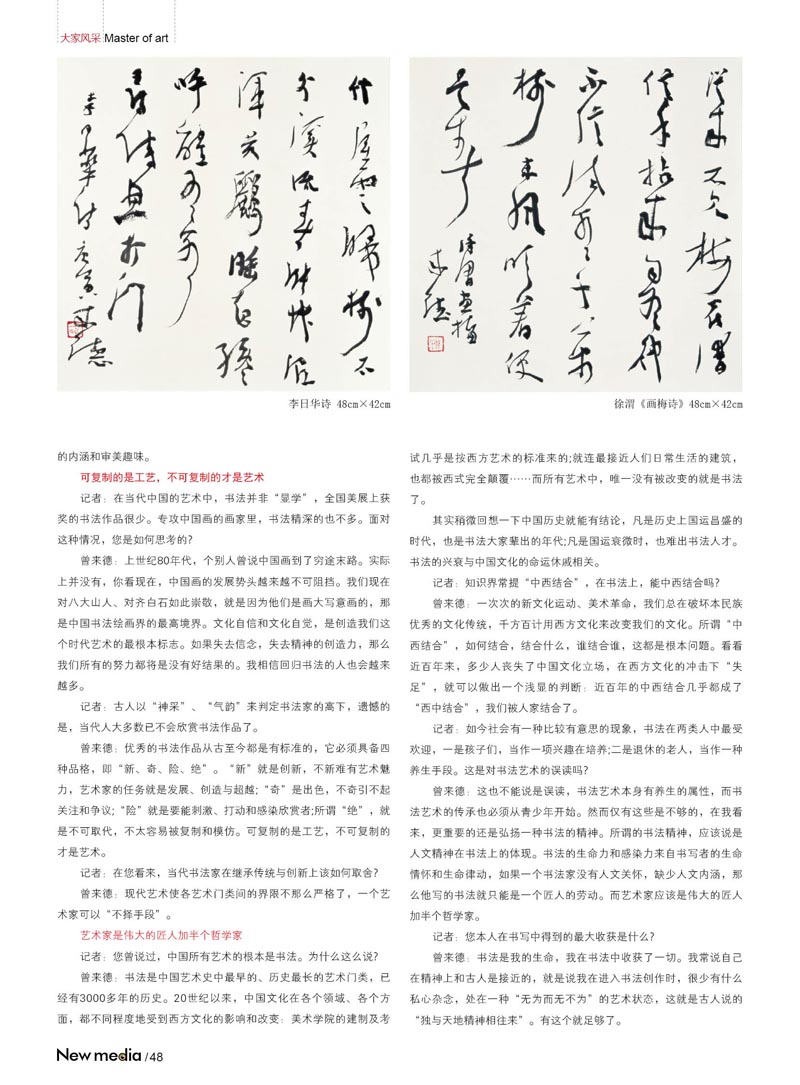 大家风采 Master of art
從来不見梅花谱
信手拈来自有神
不信试看千万
樹东风吹着便
李日华诗 48cm×42cm
徐渭《画梅诗》48cm×42cm
的内涵和审美趣味。
可复制的是工艺，不可复制的才是艺术
记者：在当代中国的艺术中，书法并非“显学”，全国美展上获
奖的书法作品很少。专攻中国画的画家里，书法精深的也不多。面对
这种情况，您是如何思考的?
曾来德：上世纪80年代，个别人曾说中国画到了穷途末路。实际
上并没有，你看现在，中国画的发展势头越来越不可阻挡。我们现在
对八大山人、对齐白石如此崇敬，就是因为他们是画大写意画的，那
是中国书法绘画界的最高境界。文化自信和文化自觉，是创造我们这
个时代艺术的最根本标志。如果失去信念，失去精神的创造力，那么
我们所有的努力都将是没有好结果的。我相信回归书法的人也会越来
越多。
记者：古人以“神采”、“气韵”来判定书法家的高下，遗憾的
是，当代人大多数已不会欣赏书法作品了。
曾来德：优秀的书法作品从古至今都是有标准的，它必须具备四
种品格，即“新、奇、险、绝”。“新”就是创新，不新难有艺术魅
力，艺术家的任务就是发展、创造与超越;“奇”是出色，不奇引不起
关注和争议;“险”就是要能刺激、打动和感染欣赏者;所谓“绝”，就
是不可取代，不太容易被复制和模仿。可复制的是工艺，不可复制的
才是艺术。
记者：在您看来，当代书法家在继承传统与创新上该如何取舍?
曾来德：现代艺术使各艺术门类间的界限不那么严格了，一个艺
术家可以“不择手段”。
艺术家是伟大的匠人加半个哲学家
记者：您曾说过，中国所有艺术的根本是书法。为什么这么说?
曾来德：书法是中国艺术史中最早的、历史最长的艺术门类，已
经有3000多年的历史。20世纪以来，中国文化在各个领域、各个方
面，都不同程度地受到西方文化的影响和改变：美术学院的建制及考
试几乎是按西方艺术的标准来的;就连最接近人们日常生活的建筑，
也都被西式完全颠覆……而所有艺术中，唯一没有被改变的就是书法
了。
其实稍微回想一下中国历史就能有结论，凡是历史上国运昌盛的
时代，也是书法大家辈出的年代;凡是国运衰微时，也难出书法人才。
书法的兴衰与中国文化的命运休戚相关。
记者：知识界常提“中西结合”，在书法上，能中西结合吗?
曾来德：一次次的新文化运动、美术革命，我们总在破坏本民族
优秀的文化传统，千方百计用西方文化来改变我们的文化。所谓“中
西结合”，如何结合，结合什么，谁结合谁，这都是根本问题。看看
近百年来，多少人丧失了中国文化立场，在西方文化的冲击下“失
足”，就可以做出一个浅显的判断：近百年的中西结合几乎都成了
“西中结合”，我们被人家结合了。
记者：如今社会有一种比较有意思的现象，书法在两类人中最受
欢迎，一是孩子们，当作一项兴趣在培养;二是退休的老人，当作一种
养生手段。这是对书法艺术的误读吗?
曾来德：这也不能说是误读，书法艺术本身有养生的属性，而书
法艺术的传承也必须从青少年开始。然而仅有这些是不够的，在我看
来，更重要的还是弘扬一种书法的精神。所谓的书法精神，应该说是
人文精神在书法上的体现。书法的生命力和感染力来自书写者的生命
情怀和生命律动，如果一个书法家没有人文关怀，缺少人文内涵，那
么他写的书法就只能是一个匠人的劳动。而艺术家应该是伟大的匠人
加半个哲学家。
记者：您本人在书写中得到的最大收获是什么?
曾来德：书法是我的生命，我在书法中收获了一切。我常说自己
在精神上和古人是接近的，就是说我在进入书法创作时，很少有什么
私心杂念，处在一种“无为而无不为”的艺术状态，这就是古人说的
“独与天地精神相往来”。有这个就足够了。
New media /48